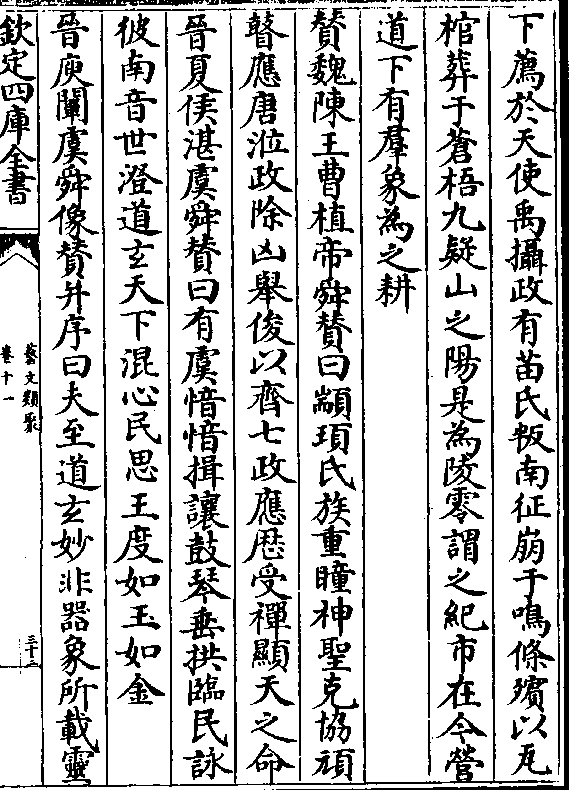 下薦於天使禹攝政有苗氏叛南征崩于鳴條殯以瓦
棺葬于蒼梧九疑山之陽是為陵零謂之紀市在今營
道下有羣象為之耕
賛魏陳王曹植帝舜賛曰顓頊氏族重瞳神聖克協頑
瞽應唐涖政除凶舉俊以齊七政應厯受禪顯天之命
晉夏侯湛虞舜賛曰有虞愔愔揖讓鼓琴垂拱臨民詠
彼南音世澄道玄天下混心民思王度如玉如金
晉庾闡虞舜像賛并序曰夫至道玄妙非器象所載靈
欽定四庫全書
藝文類聚
卷十一
三十三